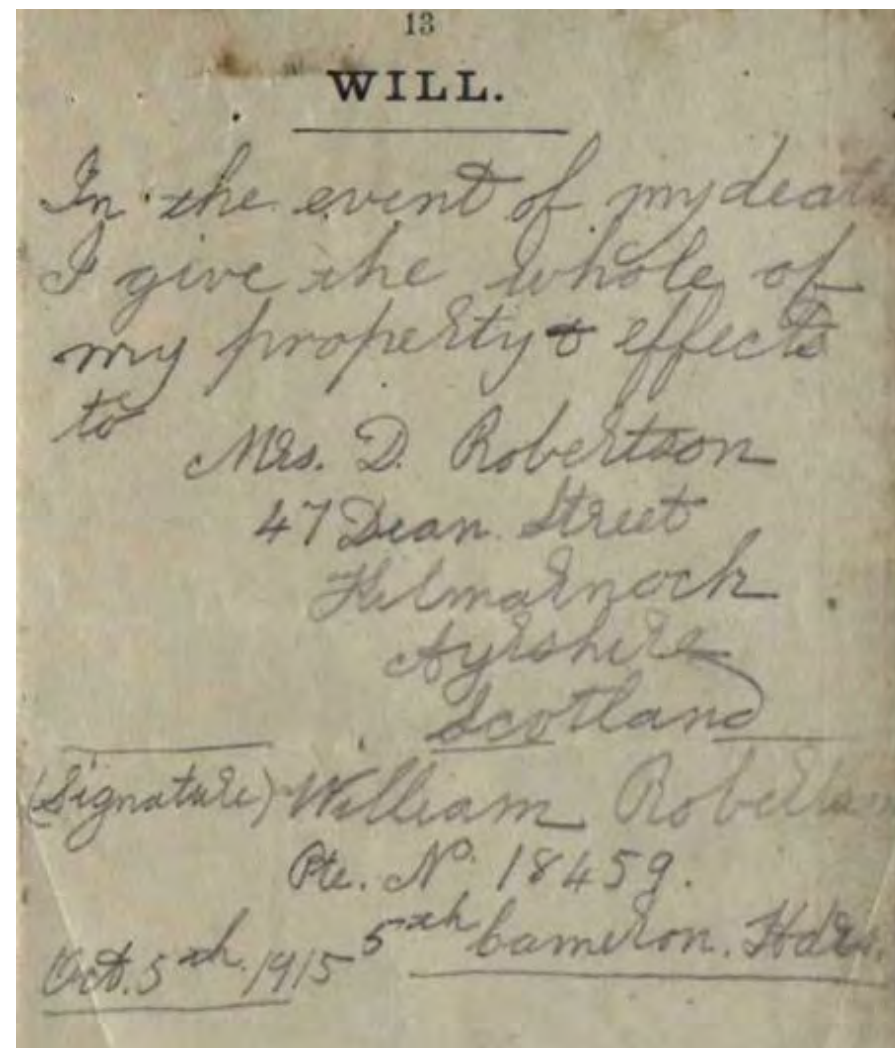 13
WILL.
In the event of my death
I give the whole of
my property & effects
to
Mrs. D. Robertson
47 Dean Street
Kilmarnock
Ayrshire
Scotland
(Signature) William Robertson
Pte. No. 18459.
Oct. 5th. 1915 5th Cameron. Hdrs.